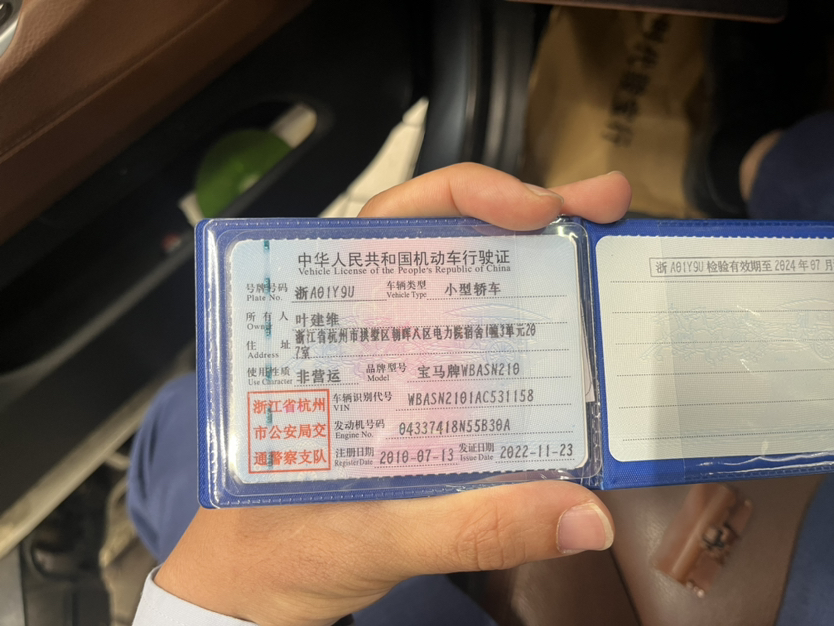 中华人民共和国机动车行驶证
Vehicle License of the People's Republic of China
号牌号码 浙A01Y9U 车辆类型 小型轿车
Plate No. Vehicle Type
所有人 叶建维
Owner
住址 浙江省杭州市拱墅区朝晖八区电力院宿舍1幢3单元20
Address 7室
使用性质 非营运 品牌型号 宝马牌WBASN210
Use Character Model
浙江省杭州
市公安局交
通警察支队
车辆识别代号 WBASN2101AC531158
VIN
发动机号码 04337418N55B30A
Engine No.
注册日期 2010-07-13 发证日期 2022-11-23
Register Date Issue Date
浙A01Y9U 检验有效期至 2024年07月